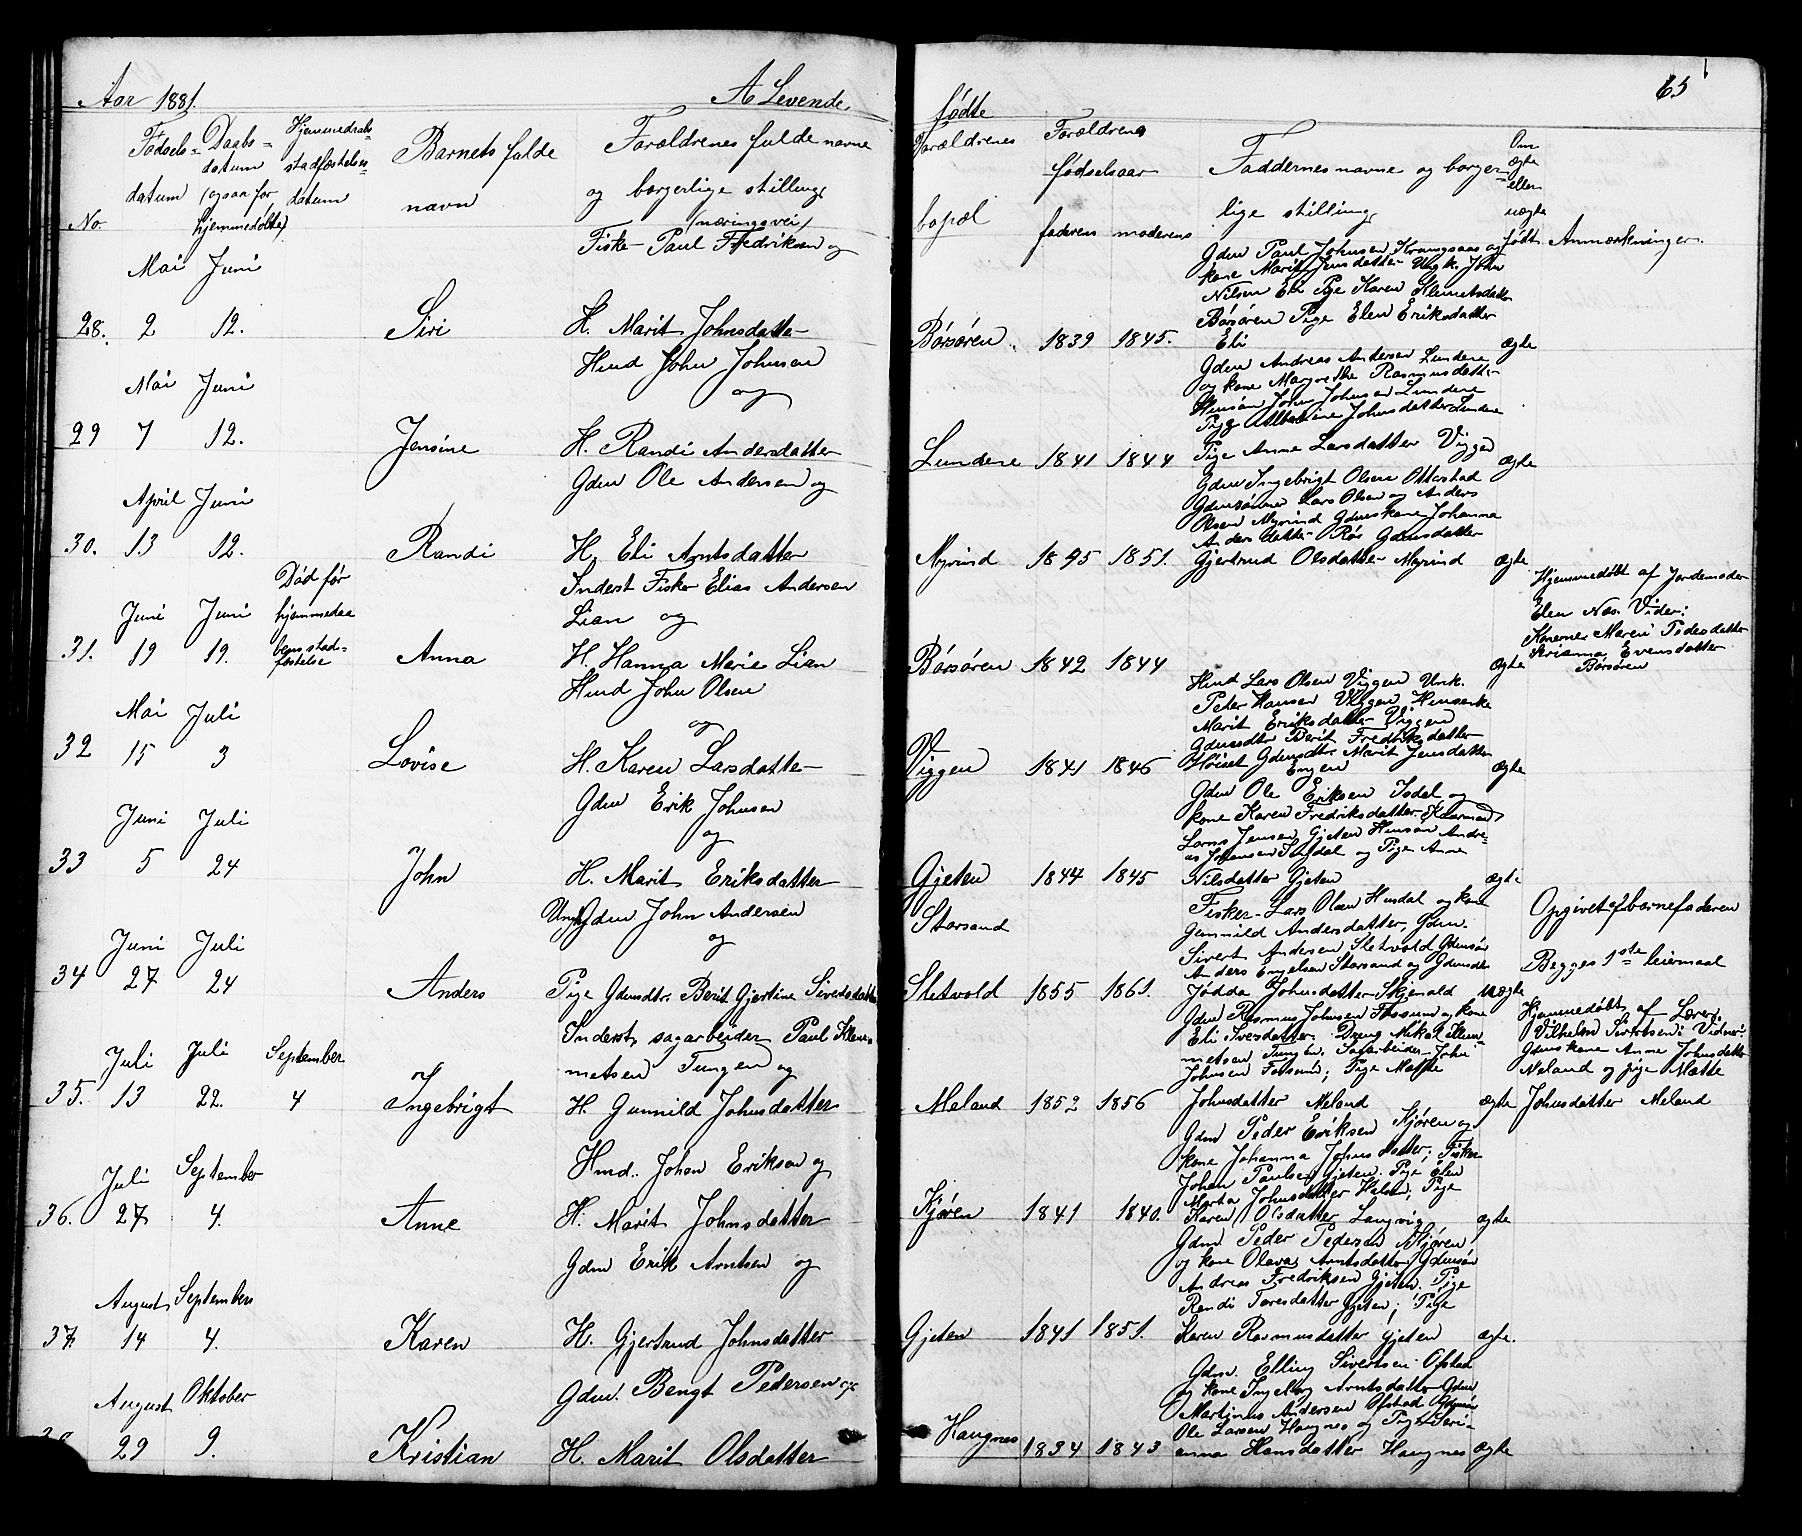 Aar 1881.
A Levende
No.
Fødsels=
datum
Daabs=
datum
(ogsaa for
hjemmedøbte)
Hjemmedaabs
stadfæstelses=
datum
Barnets fulde
navn
Forældrenes fulde navne
og borgerlige stilling,
(næringsvei)
28.
Mai
2
Juni
12.
Siri
Fisker Paul Fredriksen og
H. Marit Johnsdatter
29
Mai
7
Juni
12.
Jensine
Hmd John Johnsen
og
H. Randi Andersdatter
30.
April
13
Juni
12.
Randi
Gdm Ole Andersen og
H. Eli Arntsdatter
31.
Juni
19
Juni
19.
Død før
hjemmedaa
bens stad=
fæstelse
Anna
Inderst Fisker Elias Andersen
Lian og
H. Hanna Marie Lian
32
Mai
15
Juli
3
Lovise
Hmd John Olsen
og
H. Karen Larsdatter
33
Juni
5
Juli
24
John
Gdm Erik Johnsen
og
H. Marit Eriksdatter
34
Juni
27
Juli
24
Anders
Ungk Gdm John Andersen
og
Pige Gdmdtr. Berit Gjertine Sivertsdatter
35.
Juli
13
Juli
22.
September
4
Ingebrigt
Inderst, sagarbeider Paul Klem=
metsen Tungen og
H. Gunnild Johnsdatter
36.
Juli
27
September
4.
Anne
Hmd. Johan Eriksen og
H. Marit Johnsdatter
37.
August
14
September
4.
Karen
Gdm Erik Arntsen og
H. Gjertrud Johnsdatter
August
29
Oktober
9.
Kristian
Gdm. Bengt Pedersen og
H. Marit Olsdatter
65
fødte
Forældrenes
bopæl
Forældrenes
fødselsaar
faderens moderens
Faddernes navne og borger=
lige stilling,
Om
ægte
eller
uægte
født
Anmærkninger.
Børsøren 1839 1845.
Gdm Paul Johnsen
kone Marit Jensdatter Ungk. John
Nilsen Eli Pige Karen Klemetsdatter
Børsøren Pige Elen Eriksdatter
Eli
ægte
Lundene 1841 1844
Gdm Andreas Andersen Lundene
og kone Magrethe Rasmusdatter
John Johnsen Lundene
Pige Johnsdatter Lundene
Pige Anne Larsdatter Viggen
ægte
Myrind 1845 1851.
Gdm Ingebrigt Olsen Otterstad
Gdmsønner Lars Olsen og Anders
Olsen Myrind Gdmskone Johanna
Andersdatter Røs Gdmsdatter
Gjertrud Olsdatter Myrind
ægte
Børsøren 1842 1844
ægte
Hjemmedøbt af Jordemoder
Elen Næs. Vidner:
Konerne Maren Pedersdatter
Evensdatter
Børsøren
Viggen 1841 1846
Hmd Lars Olsen Viggen Ungk.
Peter Hansen Viggen, Hmsenke
Marit Eriksdatter Viggen
Gdmsdtr Berit Fredriksdatter
Gdmsdtr. Marit Jensdatter
Engen
ægte
Gjeten 1844 1845
Gdm Ole Eriksen
kone Karen Fredriksdatter
Jensen Gjeten Hmsøn Andre=
as Johansen og Pige Anne
Nilsdatter Gjeten
ægte
Storsand
Sletvold 1855 1861.
Fisker Lars Olsen Husdal og kone
Gunnild Andersdatter, Gdm.
Sivert Andersen Sletvold Gdmsøn
Anders Engelsen Storsand og Gdmsdtr
Jødda Johnsdatter Skjenald
uægte
Opgivet af barnefaderen
Begges 1ste leiermaal
Meland 1852 1856
Gdm Rasmus Johnsen Fossum og kone
Eli Iversdatter. Dreng Mikal Klem=
metsen Tungen. Sagarbeider John
Johnsen Fossum; Pige Matte
Johnsdatter Meland
ægte
Hjemmedøbt af Lærer
Vilhelm Sivertsen: Vidner:
Gdmskone Anne Johnsdatter
Meland og pige Matte
Johnsdatter Meland
Kjøren 1841 1840.
Gdm Peder Eriksen Kjøren og
kone Johanna Johnsdatter; Fisker
Johan Paulsen Gjeten. Pige Elen
Marta Johnsdatter; Pige
Karen Olsdatter Langvig
ægte
Gjeten 1841 1851.
Gdm Peder Pedersen Kjøren
og kone Olava Arntsdatter, Gdmsøn
Andreas Fredriksen Gjeten. Pige
Randi Toresdatter Gjeten; Pige
Karen Rasmusdatter Gjeten
ægte.
Haugnes 1834 1843
Gdm. Elling Sivertsen Ofstad
og kone Ingeborg Arntsdatter Gdm
Martinus Andersen Ofstad Gdmsøn
Ole Larsen Haugnes og Pige Seri=
anna Hansdatter Haugnes
ægte